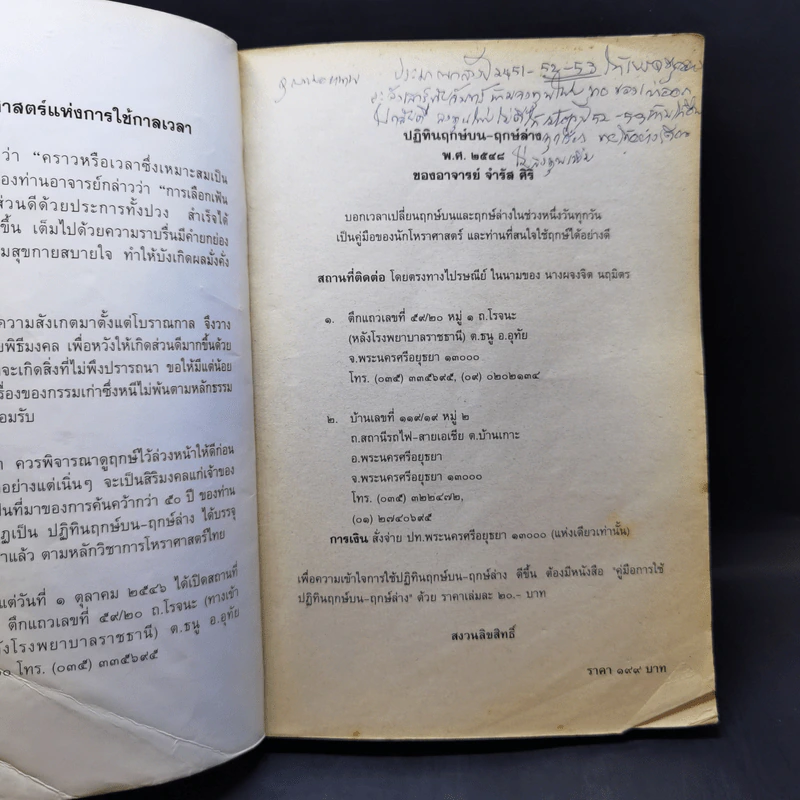 าสตร์แห่งการใช้กาลเวลา
ว่า “คราวหรือเวลาซึ่งเหมาะสมเป็น
องท่านอาจารย์กล่าวว่า “การเลือกเฟ้น
ส่วนดีด้วยประการทั้งปวง สำเร็จได้
ขึ้น เต็มไปด้วยความราบรื่นมีค่ายกย่อง
มสุขกายสบายใจ ทำให้บังเกิดผลมั่งคั่ง
ความสังเกตมาตั้งแต่โบราณกาล จึงวาง
ยพิธีมงคล เพื่อหวังให้เกิดส่วนดีมากขึ้นด้วย
จะเกิดสิ่งที่ไม่พึงปรารถนา ขอให้มีแต่น้อย
รื่องของกรรมเก่าซึ่งหนีไม่พ้นตามหลักธรรม
อมรับ
ควรพิจารณาดูฤกษ์ไว้ล่วงหน้าให้ดีก่อน
อย่างแต่เนิ่นๆ จะเป็นสิริมงคลแก่เจ้าของ
ป็นที่มาของการค้นคว้ากว่า ๕๐ ปี ของท่าน
ฏเป็น ปฏิทินฤกษ์บน-ฤกษ์ล่าง ได้บรรจุ
าแล้ว ตามหลักวิชาการโหราศาสตร์ไทย
แต่วันที่ ๑ ตุลาคม ๒๕๔๖ ได้เปิดสถานที่
ตึกแถวเลขที่ ๕๙/๒๐ ถ.โรจนะ (ทางเข้า
ลังโรงพยาบาลราชธานี) ต.ธนู อ.อุทัย
๐ โทร. (๐๓๕) ๓๓๕๖๙๕
2451-52-53
ปฏิทินฤกษ์บน-ฤกษ์ล่าง
พ.ศ. ๒๕๔๘
ของอาจารย์ จำรัส ศิริ
บอกเวลาเปลี่ยนฤกษ์บนและฤกษ์ล่างในช่วงหนึ่งวันทุกวัน
เป็นคู่มือของนักโหราศาสตร์ และท่านที่สนใจใช้ฤกษ์ได้อย่างดี
สถานที่ติดต่อ โดยตรงทางไปรษณีย์ ในนามของ นางผจงจิต นฤมิตร
๑. ตึกแถวเลขที่ ๕๙/๒๐ หมู่ ๑ ถ.โรจนะ
(หลังโรงพยาบาลราชธานี) ต.ธนู อ.อุทัย
จ.พระนครศรีอยุธยา ๑๓๐๐๐
โทร. (๐๓๕) ๓๓๕๖๙๕, (๐๙) ๐๒๐๒๑๓๔
๒. บ้านเลขที่ ๑๑๙/๑๙ หมู่ ๒
ถ.สถานีรถไฟ-สายเอเชีย ต.บ้านเกาะ
อ.พระนครศรีอยุธยา
จ.พระนครศรีอยุธยา ๑๓๐๐๐
โทร. (๐๓๕) ๓๒๒๔๗๒,
(๐๑) ๒๗๔๐๖๙๕
การเงิน สั่งจ่าย ปท.พระนครศรีอยุธยา ๑๓๐๐๐ (แห่งเดียวเท่านั้น)
เพื่อความเข้าใจการใช้ปฏิทินฤกษ์บน-ฤกษ์ล่าง ดีขึ้น ต้องมีหนังสือ "คู่มือการใช้
ปฏิทินฤกษ์บน-ฤกษ์ล่าง" ด้วย ราคาเล่มละ ๒๐.- บาท
สงวนลิขสิทธิ์
ราคา ๑๙๙ บาท